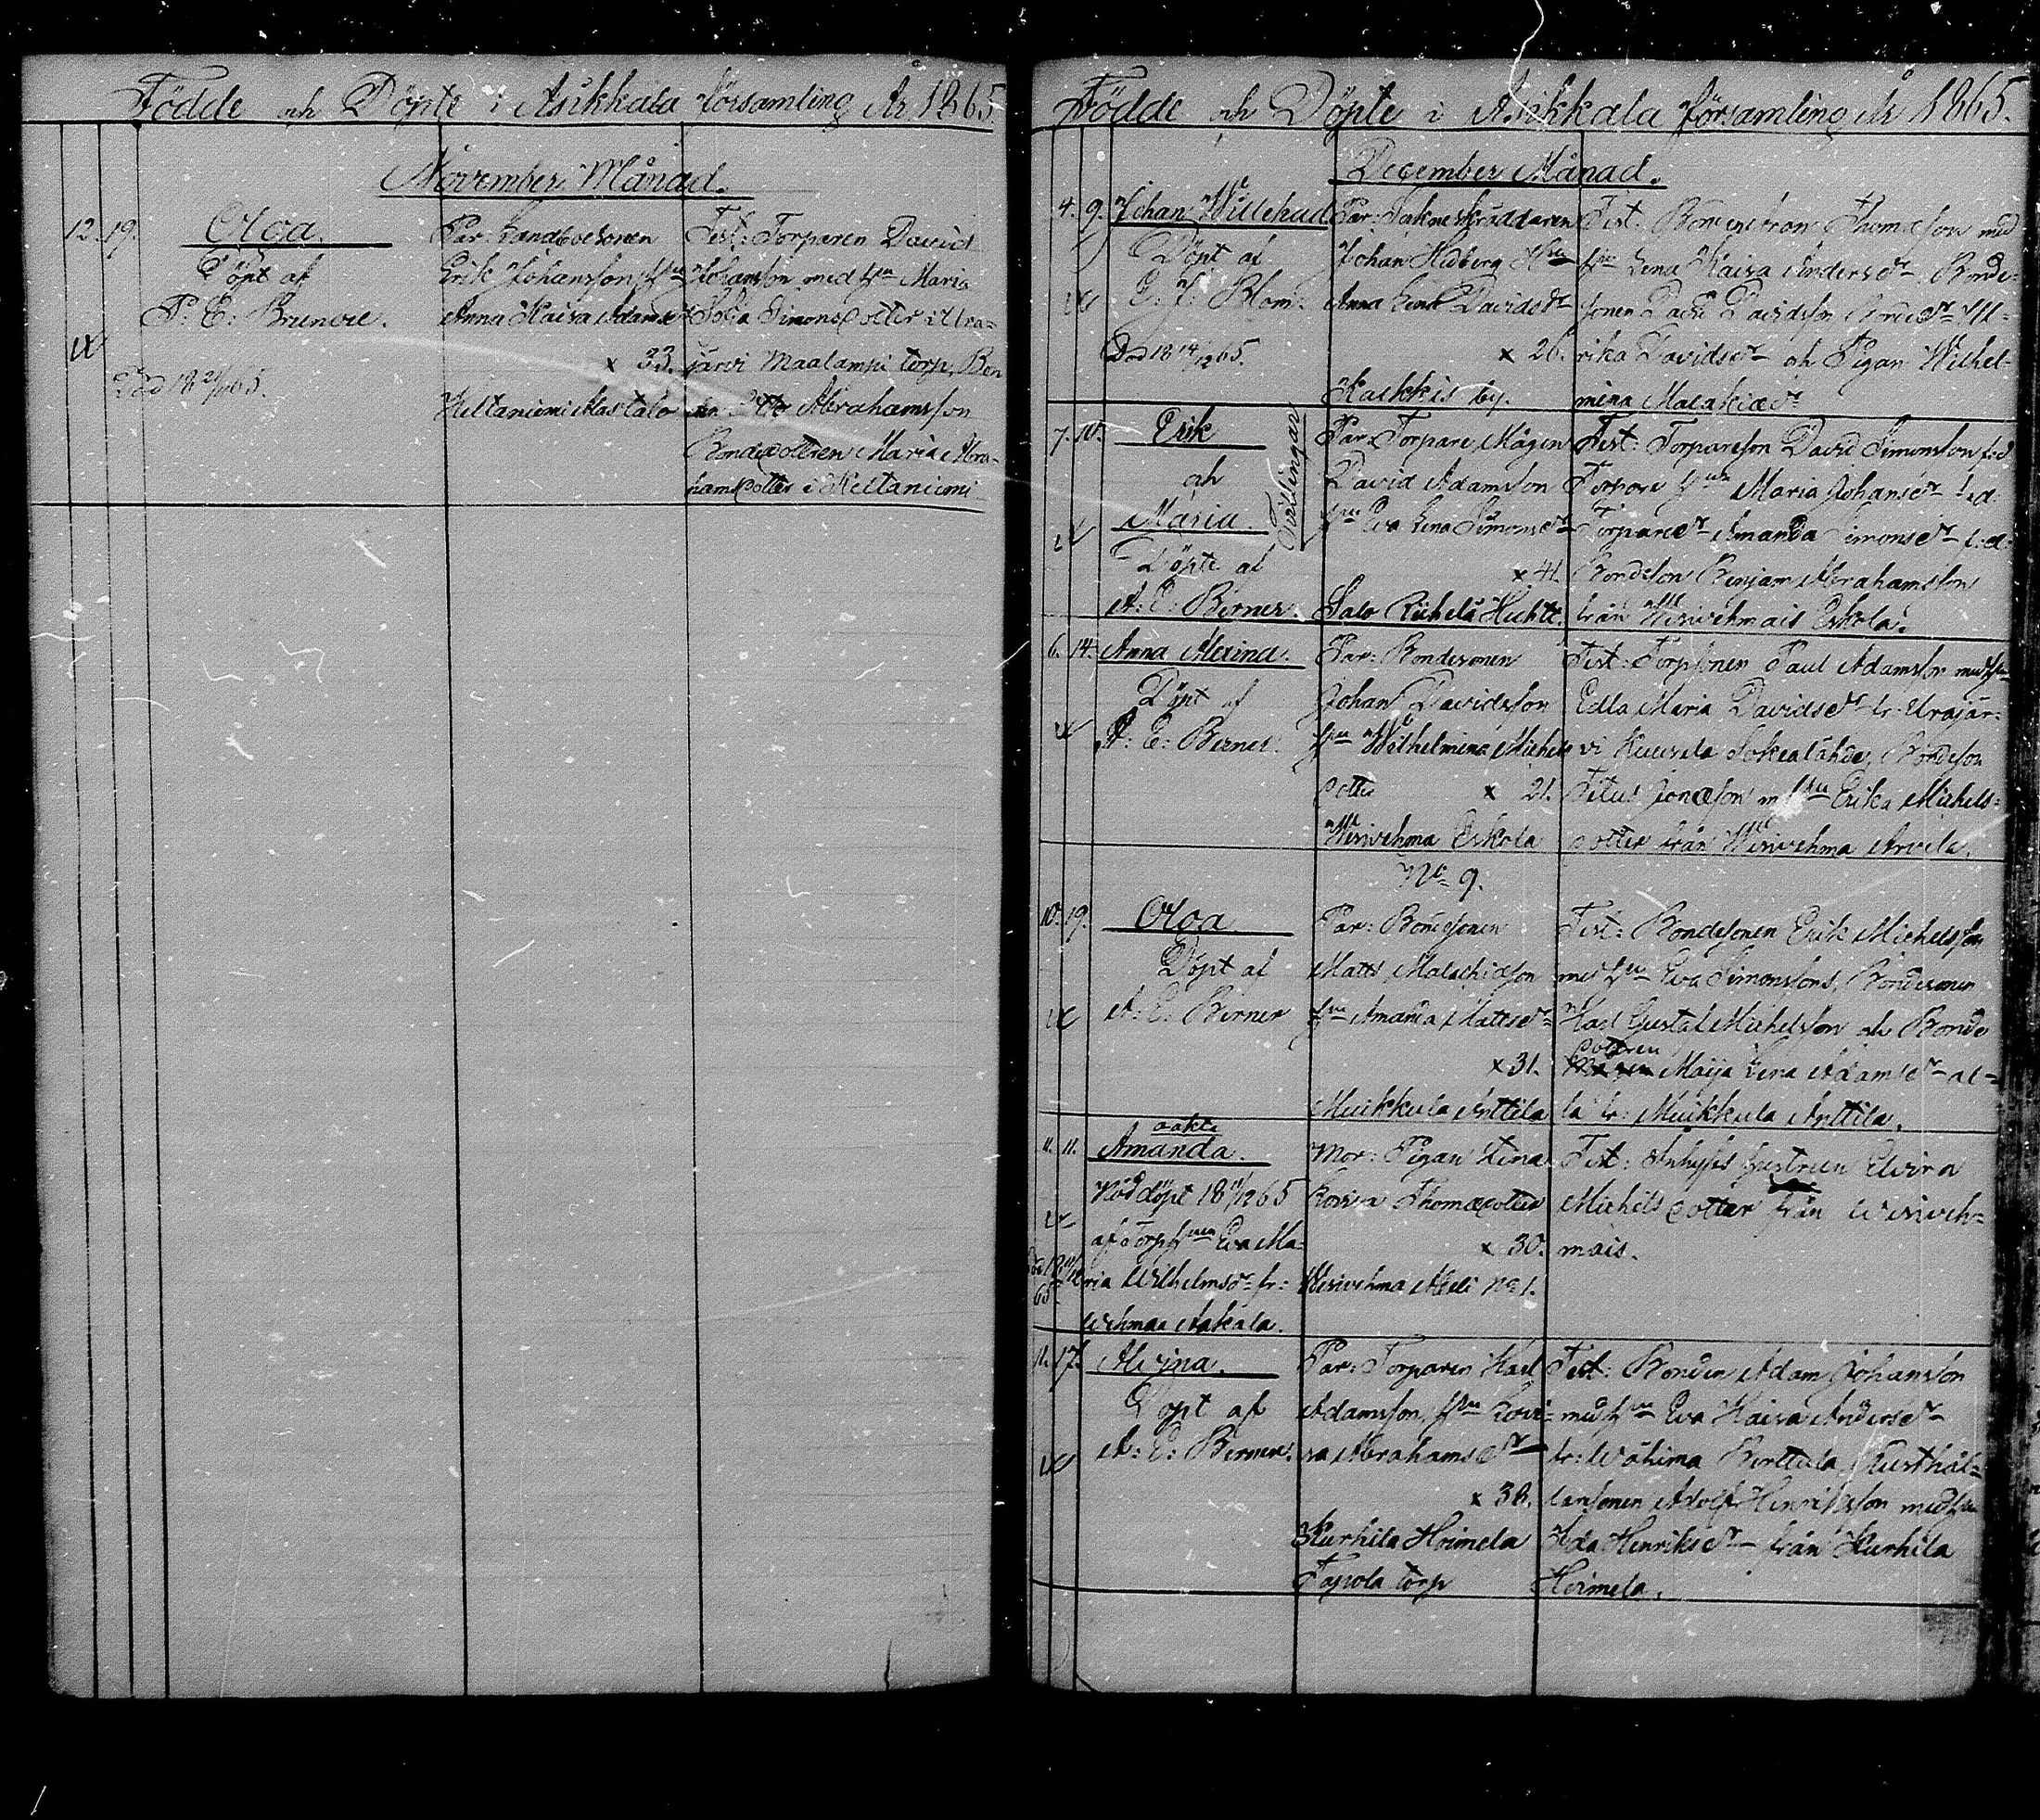 Födde och Döpte i Asikkala församling År 1865
November Månad.
12. 19. Olga.
Döpt af
P. E: Brunou.
Död 18 21/11 65.
Par: Landbosonen
Erik Johansson, hu
Anna Kaisa Adamsdr
x 33.
Keltaniemi Alastalo
Test: Torparen David
Johansson med hu Maria
Sofia Simonsdotter i Ura=
järvi Maalampi torp, Bon
den Otto Abrahamsson
Bondedotteren Maria Abra=
hamsdotter i Keltaniemi
Födde och Döpte i Asikkala församling År 1865.
December Månad.
4. 9. Johan Willehad
Döpt af
Blom.
Död 18 14/12 65.
Par: Sokneskräddaren
Johan Hedberg Hu
Anna Lena Davidsdr
x 26.
Kalkkis by.
Test: Thomasson med
hu Lena Kaisa Andersdr. Bonde=
sonen David Davidsson Ul=
rika Davidsdr och Pigan Wilhel=
mina Malakiædr
7. 10. Erik
och
Maria
Tvillingar
Döpte af
A: E: Berner.
Par: Torpare Mågen
David Adamsson
hu Eva Lena Simonsdr
x 41.
Salo Riihelä Huhtt.
Test: Torpareson David Simonsson
Torpare hu Maria Johansdr
Torparedr Amanda Simonsdr
Bondeson Benjam Abrahamsson
från Wesivehmais Eskola.
6. 14. Anna Alexina.
Döpt af
A: E: Berner.
Par: Bondesonen
Johan Davidsson
hu Wilhelmina Michels
dotter x 21.
Wesivehma Eskola
No 9.
Test: Torpsonen Paul Adamsson med hu
Edla Maria Davidsdr fr: Urajär=
vi Kuurela Sokealähde, Bondeson
Titus Jonæson m hu Erika Michels=
dotter från Wesivehma Arvela.
10. 19. Olga
Döpt af
A: E: Berner
Par: Bondesonen
Matts Malachiæson
hu Amanda Mattsdr
x 31.
Muikkula Anttila
Test: Bondesonen Erik Michelsson
med hu Eva Simonssons, Bondesonen
Karl Gustaf Michelsson och Bonde
dotteren Maija Lena Adamsdr al=
la fr: Muikkula Anttila.
11. 11. oäkta
Amanda.
Nöddöpt 18 11/12 65
af Torp huen Eva Ma=
ria Wilhelmsdr fr:
Wehmaa Aakala.
Mor: Pigan Lena
Lovisa Thomædotter
x 30.
Wesivehma Alesi No 1.
Test: Inhyses hustrun Elvira
Michelsdotter från Wesiveh=
mais.
11. 17. Alvina.
Döpt af
A: E: Berner.
Par: Torparen Karl
Adamsson, hu Lovi=
sa Abrahamsdr
x 38.
Kurhila Hoimela
Tapola torp
Test: Bonden Adam Johansson
med hu Eva Kaisa Andersdr
fr: Wähima Perttula, Rusthål=
larsonen Adolf Henriksson med hu
Ida Henriksdr från Kurhila
Hoimela.